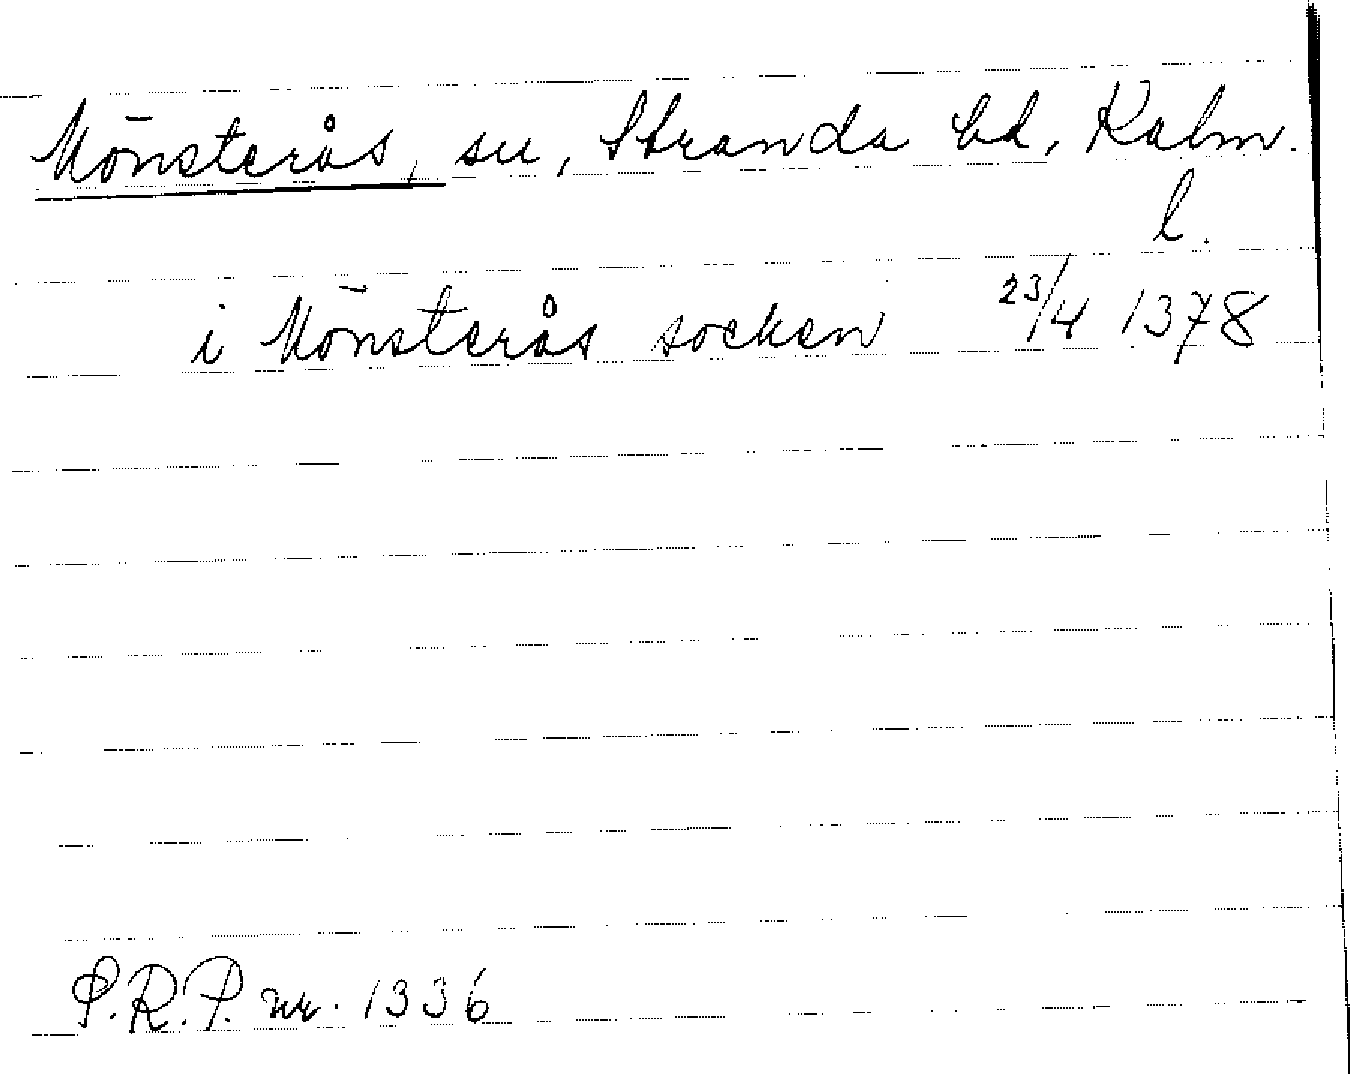 Mönsterås, sn, Stranda hd, Kalm.
l.
i Mönsterås socken 23/4 1378
S.R.P. nr. 1336